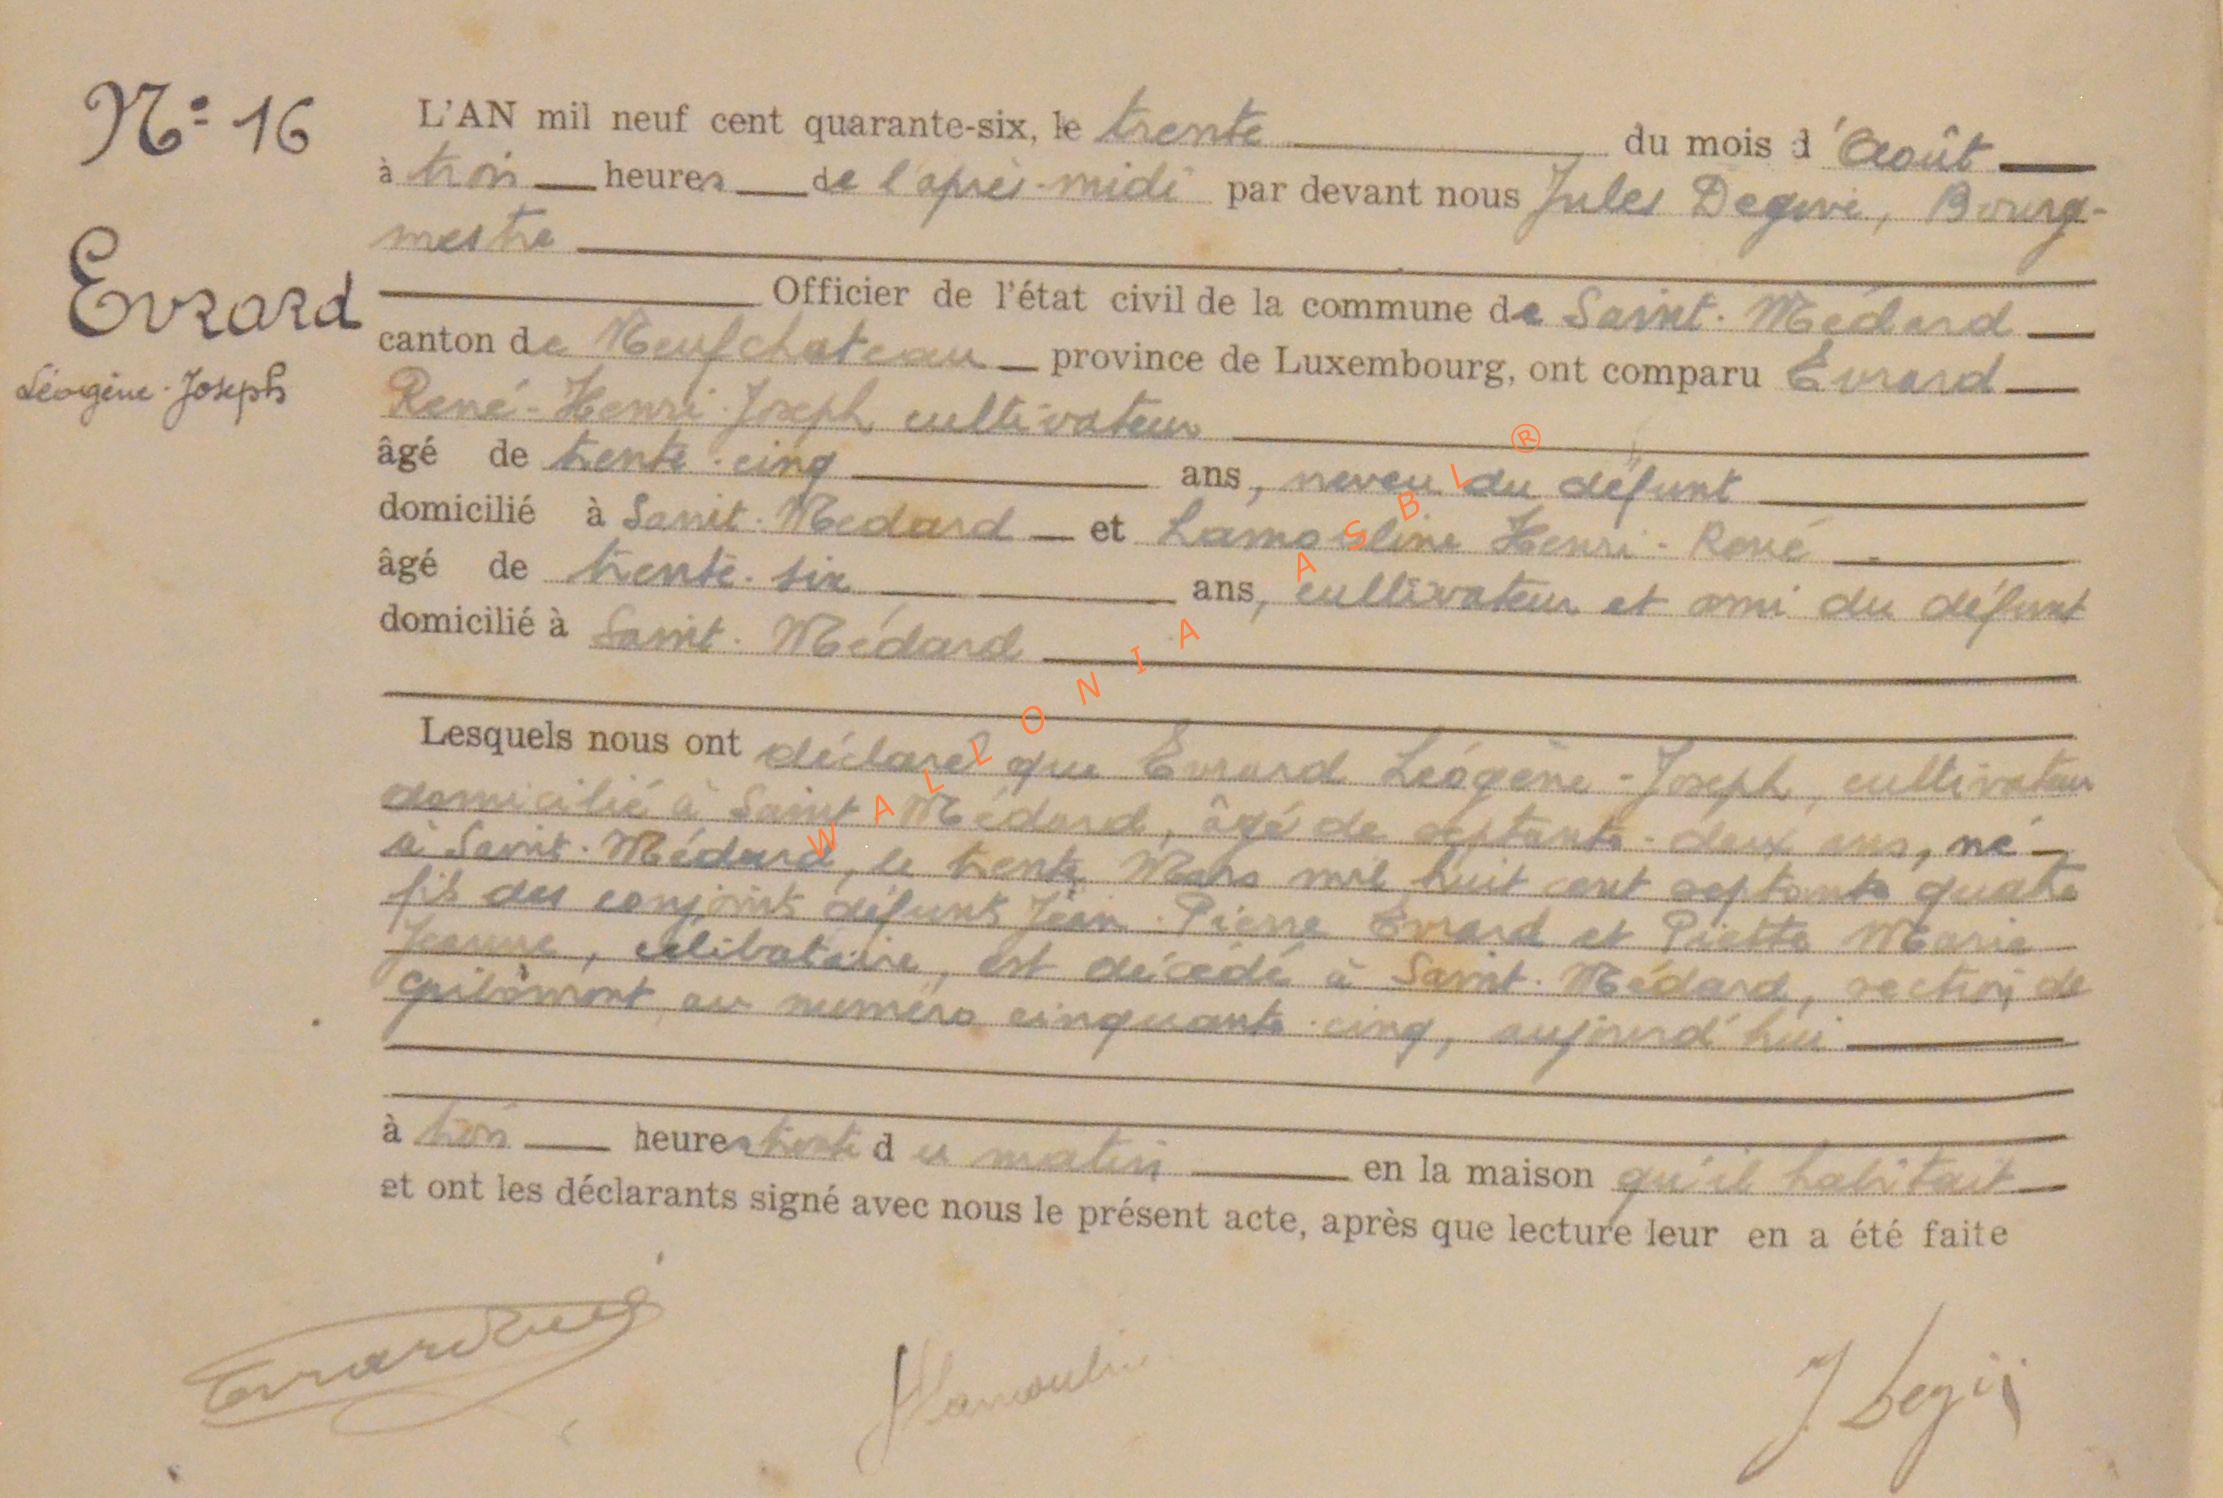 N° 16
Evrard
Léogène-Joseph
L'AN mil neuf cent quarante-six, le trente du mois d'Août
à trois heures de l'après-midi par devant nous Jules Degive, Bourg-
mestre
Officier de l'état civil de la commune de Saint-Médard
canton de Neufchateau province de Luxembourg, ont comparu Evrard
René-Henri-Joseph cultivateur
âgé de trente-cinq ans, neveu du défunt
domicilié à Saint-Médard et Lamouline Henri-René
âgé de trente-six ans, cultivateur et ami du défunt
domicilié à Saint-Médard
Lesquels nous ont déclaré que Evrard Léogène-Joseph, cultivateur
domicilié à Saint Médard, âgé de septante-deux ans, né
à Saint-Médard, le trente Mars mil huit cent septante quatre
fils des conjoints défunts Jean-Pierre Evrard et Piette Marie
Jeanne, célibataire, est décédé à Saint-Médard, section de
Gribômont au numéro cinquante-cinq, aujourd'hui
à trois heures trente du matin en la maison qu'il habitait
et ont les déclarants signé avec nous le présent acte, après que lecture leur en a été faite
Evrard René
J Degive
WALLONIA ASBL ®